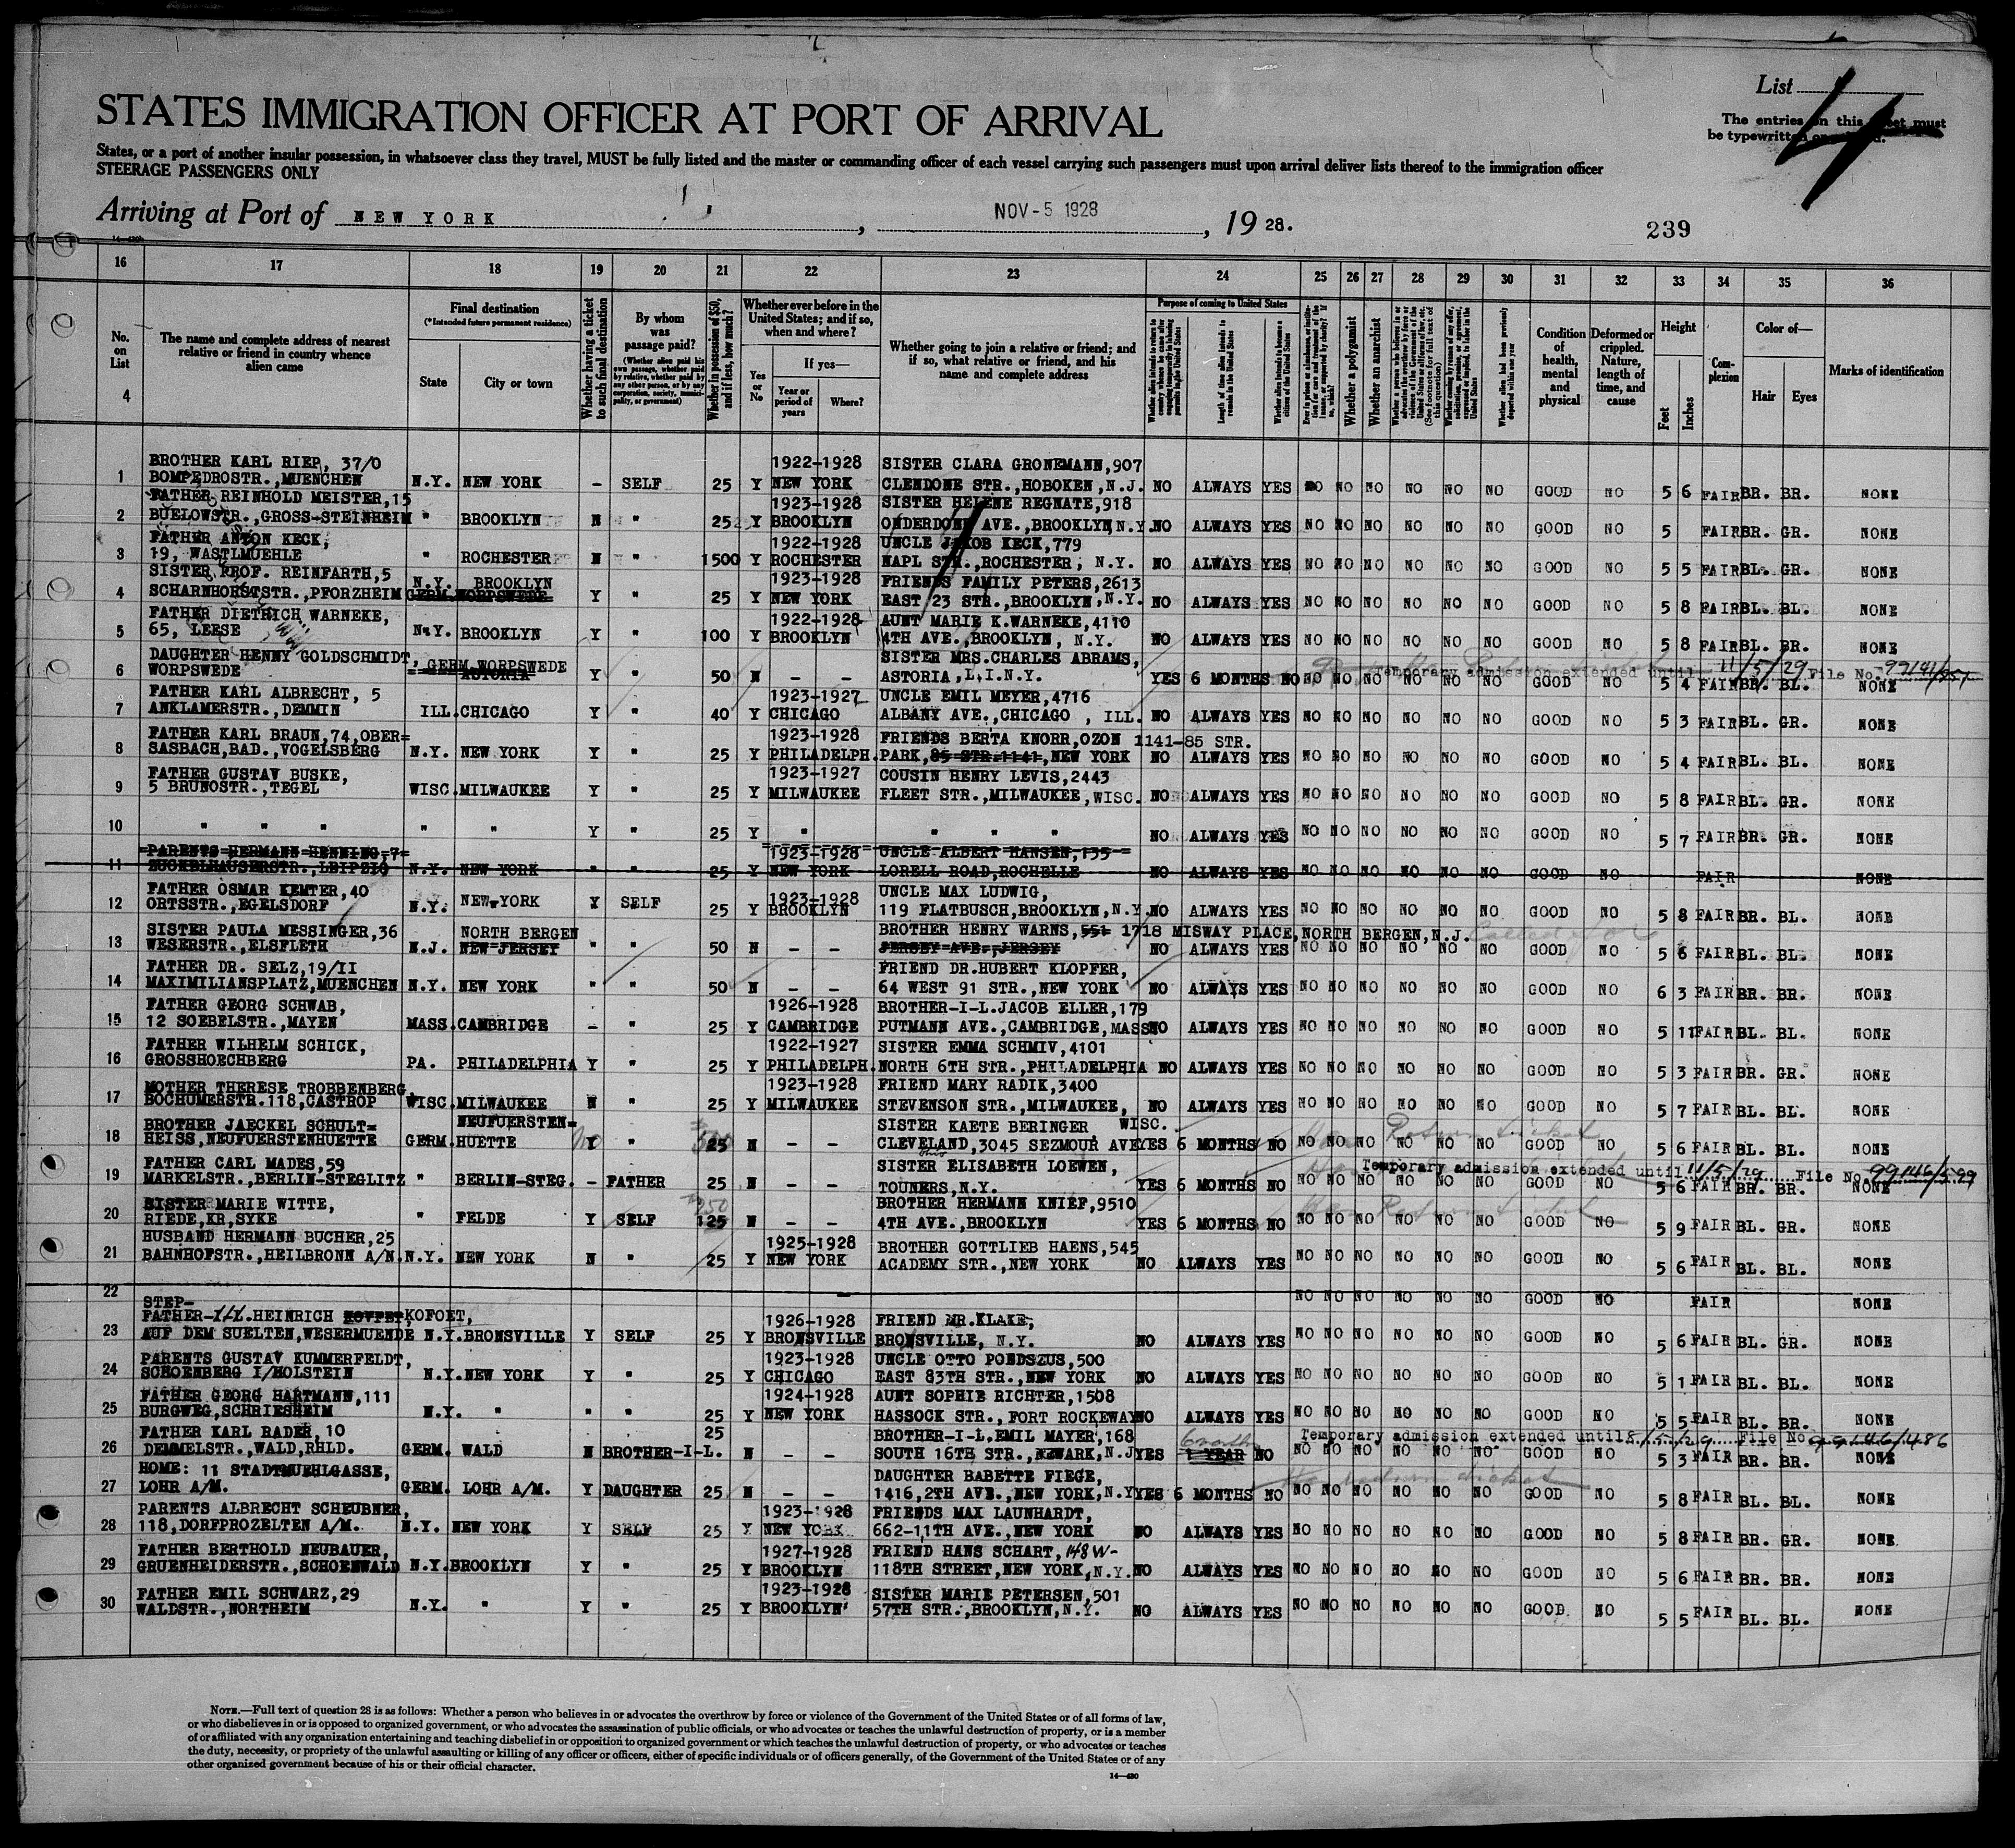 List
4
STATES IMMIGRATION OFFICER AT PORT OF ARRIVAL
The entries on this sheet must
be typewritten or printed.
States, or a port of another insular possession, in whatsoever class they travel, MUST be fully listed and the master or commanding officer of each vessel carrying such passengers must upon arrival deliver lists thereof to the immigration officer
STEERAGE PASSENGERS ONLY
Arriving at Port of NEW YORK, NOV - 5 1928, 19 28.
239
16 17 18 19 20 21 22 23 24 25 26 27 28 29 30 31 32 33 34 35 36
No. on List
4
The name and complete address of nearest relative or friend in country whence alien came
Final destination
(*Intended future permanent residence)
State
City or town
Whether having a ticket to such final destination
By whom was passage paid?
(Whether alien paid his own passage, whether paid by relative, whether paid by any other person, or by any corporation, society, municipality, or government)
Whether in possession of $50, and if less, how much?
Whether ever before in the United States; and if so, when and where?
Yes or No
If yes—
Year or period of years
Where?
Whether going to join a relative or friend; and if so, what relative or friend, and his name and complete address
Purpose of coming to United States
Length of time alien intends to remain in the United States
Whether alien intends to become a citizen of the United States
Whether a polygamist
Whether an anarchist
Condition of health, mental and physical
Deformed or crippled. Nature, length of time, and cause
Height
Feet
Inches
Complexion
Color of—
Hair
Eyes
Marks of identification
BROTHER KARL RIEP, 37/0 1922-1928 SISTER CLARA GRONEMANN,907
1 BOMPEDROSTR.,MUENCHEN N.Y. NEW YORK - SELF 25 Y NEW YORK CLENDONE STR.,HOBOKEN,N.J. NO ALWAYS YES NO NO NO NO NO NO GOOD NO 5 6 FAIR BR. BR. NONE
FATHER REINHOLD MEISTER,15 1923-1928 SISTER HELENE REGNATE,918
2 BUELOWSTR.,GROSS-STEINHEIM " BROOKLYN N " 25 Y BROOKLYN ONDERDONK AVE.,BROOKLYN,N.Y. NO ALWAYS YES NO NO NO NO NO NO GOOD NO 5 FAIR BR. GR. NONE
FATHER ANTON KECK, 1922-1928 UNCLE JAKOB KECK,779
3 19, WASTLMUEHLE " ROCHESTER N " 1500 Y ROCHESTER NAPL STR.,ROCHESTER, N.Y. NO ALWAYS YES NO NO NO NO NO NO GOOD NO 5 5 FAIR BL. GR. NONE
SISTER PROF. REINFARTH,5 N.Y. BROOKLYN 1923-1928 FRIENDS FAMILY PETERS,2613
4 SCHARNHORSTSTR.,PFORZHEIM GERM.WORPSWEDE Y " 25 Y NEW YORK EAST 23 STR.,BROOKLYN,N.Y. NO ALWAYS YES NO NO NO NO NO NO GOOD NO 5 8 FAIR BL. BL. NONE
FATHER DIETRICH WARNEKE, 1922-1928 AUNT MARIE K.WARNEKE,4110
5 65, LEESE N.Y. BROOKLYN Y " 100 Y BROOKLYN 4TH AVE.,BROOKLYN, N.Y. NO ALWAYS YES NO NO NO NO NO NO GOOD NO 5 8 FAIR BL. BR. NONE
DAUGHTER HENNY GOLDSCHMIDT, GERM.WORPSWEDE SISTER MRS.CHARLES ABRAMS, Temporary admission extended until 11/5/29 File No.
6 WORPSWEDE ASTORIA Y " 50 N - - ASTORIA,L.I.N.Y. YES 6 MONTHS NO NO NO NO NO NO NO GOOD NO 5 4 FAIR BR. BL. NONE
FATHER KARL ALBRECHT, 5 1923-1927 UNCLE EMIL MEYER,4716
7 ANKLAMERSTR.,DEMMIN ILL. CHICAGO Y " 40 Y CHICAGO ALBANY AVE.,CHICAGO , ILL. NO ALWAYS YES NO NO NO NO NO NO GOOD NO 5 3 FAIR BL. GR. NONE
FATHER KARL BRAUN,74,OBER= 1923-1928 FRIENDS BERTA KNORR,OZON 1141-85 STR.
8 SASBACH,BAD.,VOGELSBERG N.Y. NEW YORK Y " 25 Y PHILADELPH. PARK,85 STR.1141,NEW YORK NO ALWAYS YES NO NO NO NO NO NO GOOD NO 5 4 FAIR BL. BL. NONE
FATHER GUSTAV BUSKE, 1923-1927 COUSIN HENRY LEVIS,2443
9 5 BRUNOSTR.,TEGEL WISC. MILWAUKEE Y " 25 Y MILWAUKEE FLEET STR.,MILWAUKEE,WISC. NO ALWAYS YES NO NO NO NO NO NO GOOD NO 5 8 FAIR BL. GR. NONE
10 " " " " " Y " 25 Y " " " " NO ALWAYS YES NO NO NO NO NO NO GOOD NO 5 7 FAIR BR. GR. NONE
PARENTS HERMANN HENNING,7 1923-1928 UNCLE ALBERT HANSEN,135
11 ZUCKELHAUSERSTR.,LEIPZIG N.Y. NEW YORK " " 25 Y NEW YORK LORELL ROAD,ROCHELLE NO ALWAYS YES NO NO NO NO NO NO GOOD NO FAIR NONE
FATHER OSMAR KEMTER,40 1923-1928 UNCLE MAX LUDWIG,
12 ORTSSTR.,EGELSDORF N.Y. NEW YORK Y SELF 25 Y BROOKLYN 119 FLATBUSCH,BROOKLYN,N.Y. NO ALWAYS YES NO NO NO NO NO NO GOOD NO 5 8 FAIR BR. BL. NONE
SISTER PAULA MESSINGER,36 NORTH BERGEN BROTHER HENRY WARNS,551 1718 MISWAY PLACE,NORTH BERGEN,N.J.
13 WESERSTR.,ELSFLETH N.J. NEW JERSEY " " 50 N - - JERSEY AVE.,JERSEY NO ALWAYS YES NO NO NO NO NO NO GOOD NO 5 6 FAIR BL. BL. NONE
FATHER DR. SELZ,19/II FRIEND DR.HUBERT KLOPFER,
14 MAXIMILIANSPLATZ,MUENCHEN N.Y. NEW YORK " " 50 N - - 64 WEST 91 STR.,NEW YORK NO ALWAYS YES NO NO NO NO NO NO GOOD NO 6 3 FAIR BR. BR. NONE
FATHER GEORG SCHWAB, 1926-1928 BROTHER-I-L.JACOB ELLER,179
15 12 SOEBELSTR.,MAYEN MASS. CAMBRIDGE - " 25 Y CAMBRIDGE PUTMANN AVE.,CAMBRIDGE,MASS NO ALWAYS YES NO NO NO NO NO NO GOOD NO 5 11 FAIR BL. BL. NONE
FATHER WILHELM SCHICK, 1922-1927 SISTER EMMA SCHMIV,4101
16 GROSSHOECHBERG PA. PHILADELPHIA Y " 25 Y PHILADELPH. NORTH 6TH STR.,PHILADELPHIA NO ALWAYS YES NO NO NO NO NO NO GOOD NO 5 3 FAIR BR. GR. NONE
MOTHER THERESE TROBBENBERG, 1923-1928 FRIEND MARY RADIK,3400
17 BOCHUMERSTR.118,CASTROP WISC. MILWAUKEE N " 25 Y MILWAUKEE STEVENSON STR.,MILWAUKEE, NO ALWAYS YES NO NO NO NO NO NO GOOD NO 5 7 FAIR BL. BL. NONE
BROTHER JAECKEL SCHULT= NEUFUERSTEN= SISTER KAETE BERINGER WISC. Has Return ticket
18 HEISS,NEUFUERSTENHUETTE GERM. HUETTE Y " 25 N - - CLEVELAND,3045 SEZMOUR AVE YES 6 MONTHS NO NO NO NO NO NO NO GOOD NO 5 6 FAIR BL. BL. NONE
Ohio
FATHER CARL MADES,59 SISTER ELISABETH LOEWEN, Temporary admission extended until 11/5/29 File No. 99146/599
19 MARKELSTR.,BERLIN-STEGLITZ " BERLIN-STEG. - FATHER 25 N - - TOUNERS,N.Y. YES 6 MONTHS NO NO NO NO NO NO NO GOOD NO 5 6 FAIR BR. BR. NONE
SISTER MARIE WITTE, BROTHER HERMANN KNIEF,9510 Has Return ticket
20 RIEDE,KR,SYKE " FELDE Y SELF 125 N - - 4TH AVE.,BROOKLYN YES 6 MONTHS NO NO NO NO NO NO NO GOOD NO 5 9 FAIR BL. GR. NONE
HUSBAND HERMANN BUCHER,25 1925-1928 BROTHER GOTTLIEB HAENS,545
21 BAHNHOFSTR.,HEILBRONN A/N. N.Y. NEW YORK N " 25 Y NEW YORK ACADEMY STR.,NEW YORK NO ALWAYS YES NO NO NO NO NO NO GOOD NO 5 6 FAIR BL. BL. NONE
22 NO NO NO NO NO NO GOOD NO FAIR NONE
STEP-
FATHER HEINRICH KOFOET, 1926-1928 FRIEND MR.KLAKE,
23 AUF DEM SUELTEN,WESERMUENDE N.Y. BRONSVILLE Y SELF 25 Y BRONSVILLE BRONSVILLE, N.Y. NO ALWAYS YES NO NO NO NO NO NO GOOD NO 5 6 FAIR BL. GR. NONE
PARENTS GUSTAV KUMMERFELDT, 1923-1928 UNCLE OTTO PONDSZUS,500
24 SCHOENBERG I/HOLSTEIN N.Y. NEW YORK Y " 25 Y CHICAGO EAST 83TH STR.,NEW YORK NO ALWAYS YES NO NO NO NO NO NO GOOD NO 5 1 FAIR BL. BL. NONE
FATHER GEORG HARTMANN,111 1924-1928 AUNT SOPHIE RICHTER,1508
25 BURGWEG,SCHRIESHEIM N.Y. " " " 25 Y NEW YORK HASSOCK STR.,FORT ROCKEWAY NO ALWAYS YES NO NO NO NO NO NO GOOD NO 5 5 FAIR BL. BR. NONE
FATHER KARL RADER, 10 25 BROTHER-I-L.EMIL MAYER,168 6 months Temporary admission extended until 8/5/29 File No. 99146/486
26 DEMMELSTR.,WALD,RHLD. GERM. WALD N BROTHER-I-L. N - - SOUTH 16TH STR.,NEWARK,N.J YES 1 YEAR NO NO NO NO NO NO NO GOOD NO 5 3 FAIR BR. BR. NONE
HOME: 11 STADTMUEHLGASSE, DAUGHTER BABETTE FIEGE, Has return ticket
27 LOHR A/M. GERM. LOHR A/M. Y DAUGHTER 25 N - - 1416,2TH AVE.,NEW YORK,N.Y YES 6 MONTHS NO NO NO NO NO NO NO GOOD NO 5 8 FAIR BL. BL. NONE
PARENTS ALBRECHT SCHEUBNER, 1923-1928 FRIENDS MAX LAUNHARDT,
28 118,DORFPROZELTEN A/M. N.Y. NEW YORK Y SELF 25 Y NEW YORK 662-11TH AVE.,NEW YORK NO ALWAYS YES NO NO NO NO NO NO GOOD NO 5 8 FAIR BR. GR. NONE
FATHER BERTHOLD NEUBAUER, 1927-1928 FRIEND HANS SCHART, 148 W-
29 GRUENHEIDERSTR.,SCHOENWALD N.Y. BROOKLYN Y " 25 Y BROOKLYN 118TH STREET,NEW YORK,N.Y. NO ALWAYS YES NO NO NO NO NO NO GOOD NO 5 6 FAIR BR. BR. NONE
FATHER EMIL SCHWARZ,29 1923-1928 SISTER MARIE PETERSEN,501
30 WALDSTR.,NORTHEIM N.Y. " Y " 25 Y BROOKLYN 57TH STR.,BROOKLYN,N.Y. NO ALWAYS YES NO NO NO NO NO NO GOOD NO 5 5 FAIR BL. BL. NONE
NOTE.—Full text of question 28 is as follows: Whether a person who believes in or advocates the overthrow by force or violence of the Government of the United States or of all forms of law,
or who disbelieves in or is opposed to organized government, or who advocates the assassination of public officials, or who advocates or teaches the unlawful destruction of property, or is a member
of or affiliated with any organization entertaining and teaching disbelief in or opposition to organized government or which teaches the unlawful destruction of property, or who advocates or teaches
the duty, necessity, or propriety of the unlawful assaulting or killing of any officer or officers, either of specific individuals or of officers generally, of the Government of the United States or of any
other organized government because of his or their official character.
14—430